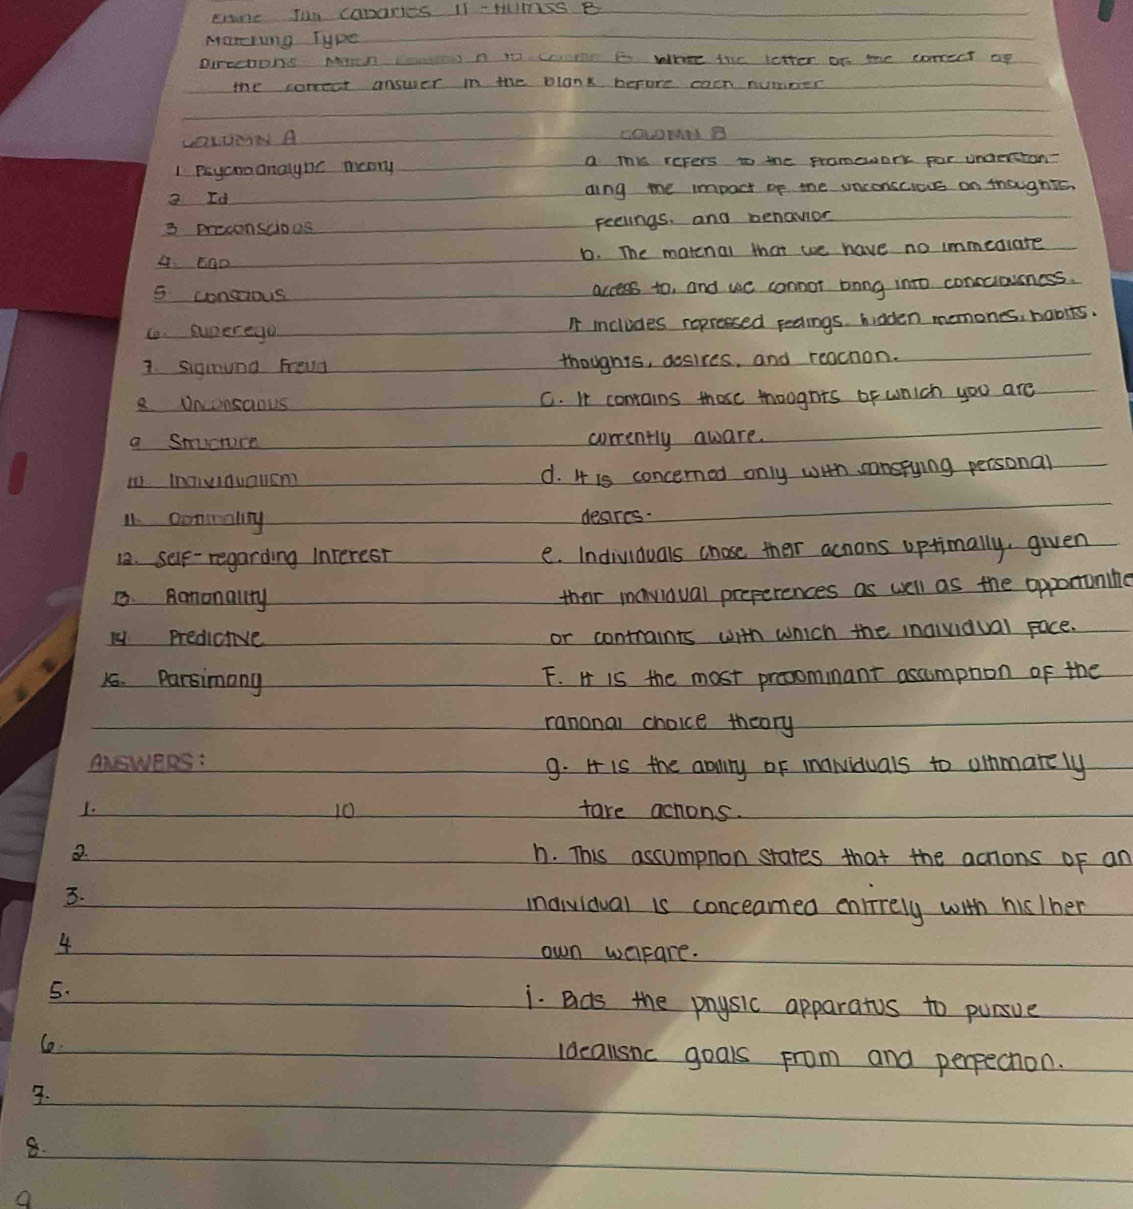 Jun Cabaries 11 - Humss B
Matching Type
Directions Match Column A to Column B Write the letter of the correct of
the correct answer in the blank before each number
COLUMN A
COLUMN B
1. Psychoanalytic theory
2. Id
3 preconscious
4. Ego
5 conscious
6. Superego
7. Sigmund Freud
8 Unconscious
9 Structure
10 Individualism
11. Optimality
12. Self-regarding Interest
13. Rationality
14 Predictive
15. Parsimony
a This refers to the framework for understan-
ding the impact of the unconscious on thoughts,
feelings, and behavior
b. The material that we have no immediate
access to, and we cannot bring into consciousness.
It includes repressed feelings, hidden memories, habits,
thoughts, desires, and reaction.
C. It contains those thoughts of which you are
currently aware.
d. It is concerned only with satisfying personal
desires.
e. Individuals chose their actions optimally, given
their individual preferences as well as the opportunitie
or contraints with which the individual face.
F. It is the most predominant assumption of the
rational choice theory
g. It is the ability of individuals to ultimately
take actions.
h. This assumption states that the actions of an
individual is concearned entirely with his/her
own welfare.
i. Bids the physic apparatus to pursue
idealistic goals from and perfection.
ANSWERS:
1. 10
2.
3.
4
5.
6.
7.
8.
9